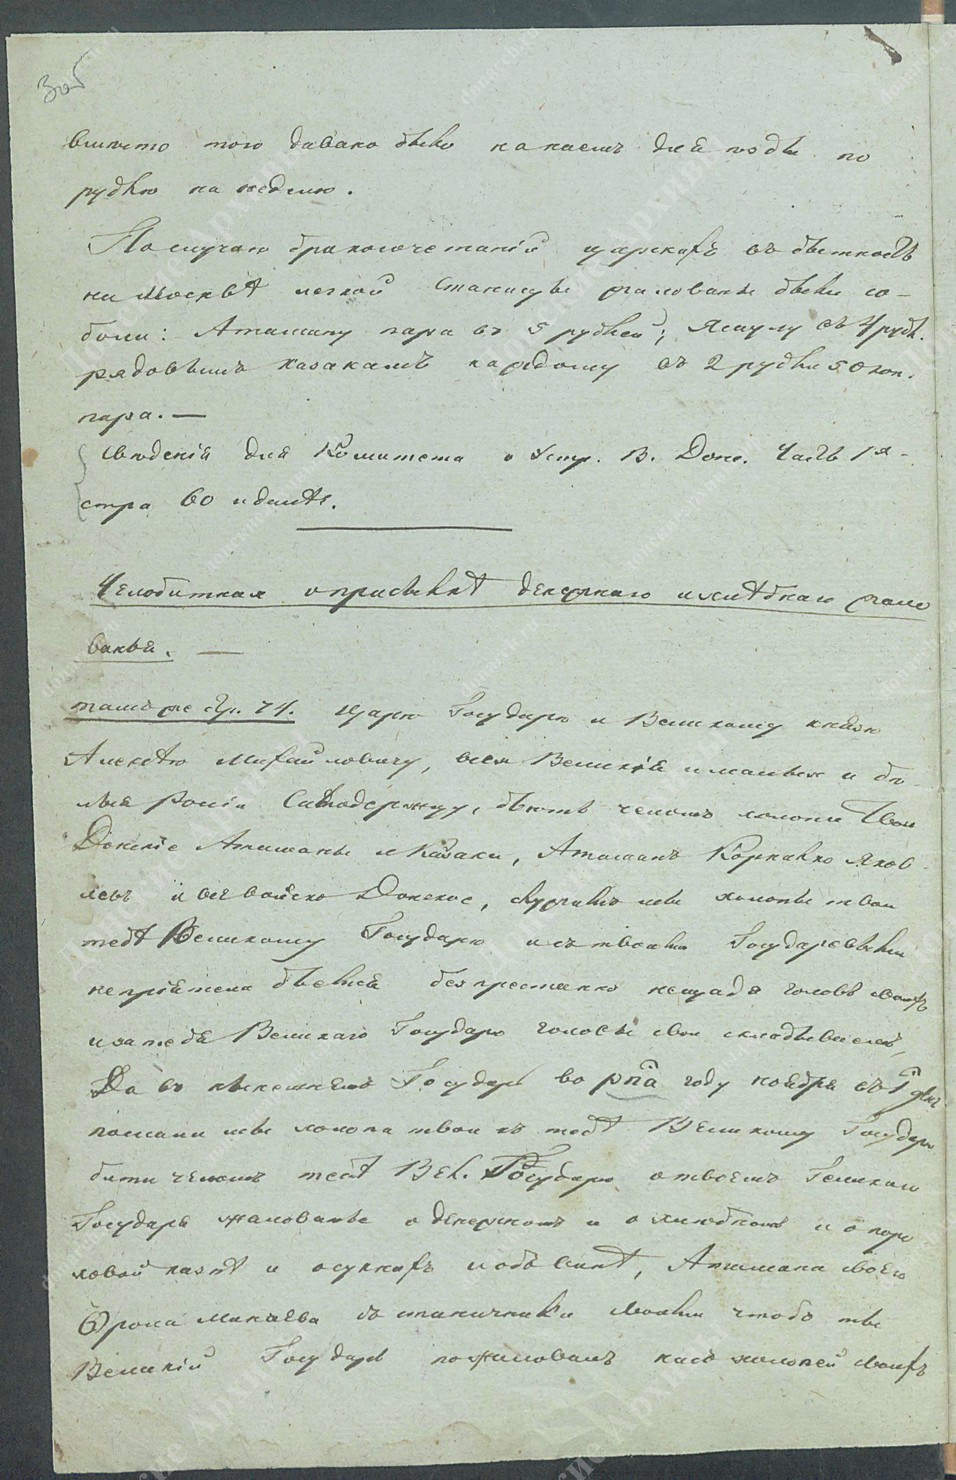 вместо того давано было на наемъ для воды по
рублю на неделю.
По случаю бракосочетаній царскихъ въ бытность
на Москвѣ легкой станицы жалованы были со-
боли: Атаману пара въ 5 рублей; Ясаулу въ 4 рубл.
рядовымъ казакамъ каждому въ 2 рубли 50 коп.
пара. —
Сведенія для Комитета о Устр. В. Донс. Часть 1я
стра 60 и далѣе.
Челобитная о присылкѣ денежнаго и хлѣбнаго жало
ванья. —
тамъ же стр. 74. Царю Государю и Великому князю
Алексѣю Михайловичу, всея Великія и малыя и бѣ-
лыя Росіи Самодержцу, бьютъ челомъ холопи Твои
Донскіе Атаманы и Казаки, Атаманъ Корнилко Яков
левъ и все войско Донское, служимъ мы холопы твои
тебѣ Великому Государю и съ твоими Государевыми
непріятели бьемся безпрестанно нещадя головъ своихъ
и за тебя Великаго Государя головы свои складываемъ,
Да въ нынешнемъ Государь во рпа году ноября въ 1 день
послали мы холопи твои къ тебѣ Великому Государю
бити челомъ тебѣ Вел. Государю о твоемъ Великаго
Государя жалованье о денежномъ и о хлюбномъ и о поро
ховой казнѣ и о сукнахъ и объ винѣ, Атамана своего
Фрола Минаева съ станичники своими чтобъ ты
Великій Государь пожаловалъ насъ холопей своихъ